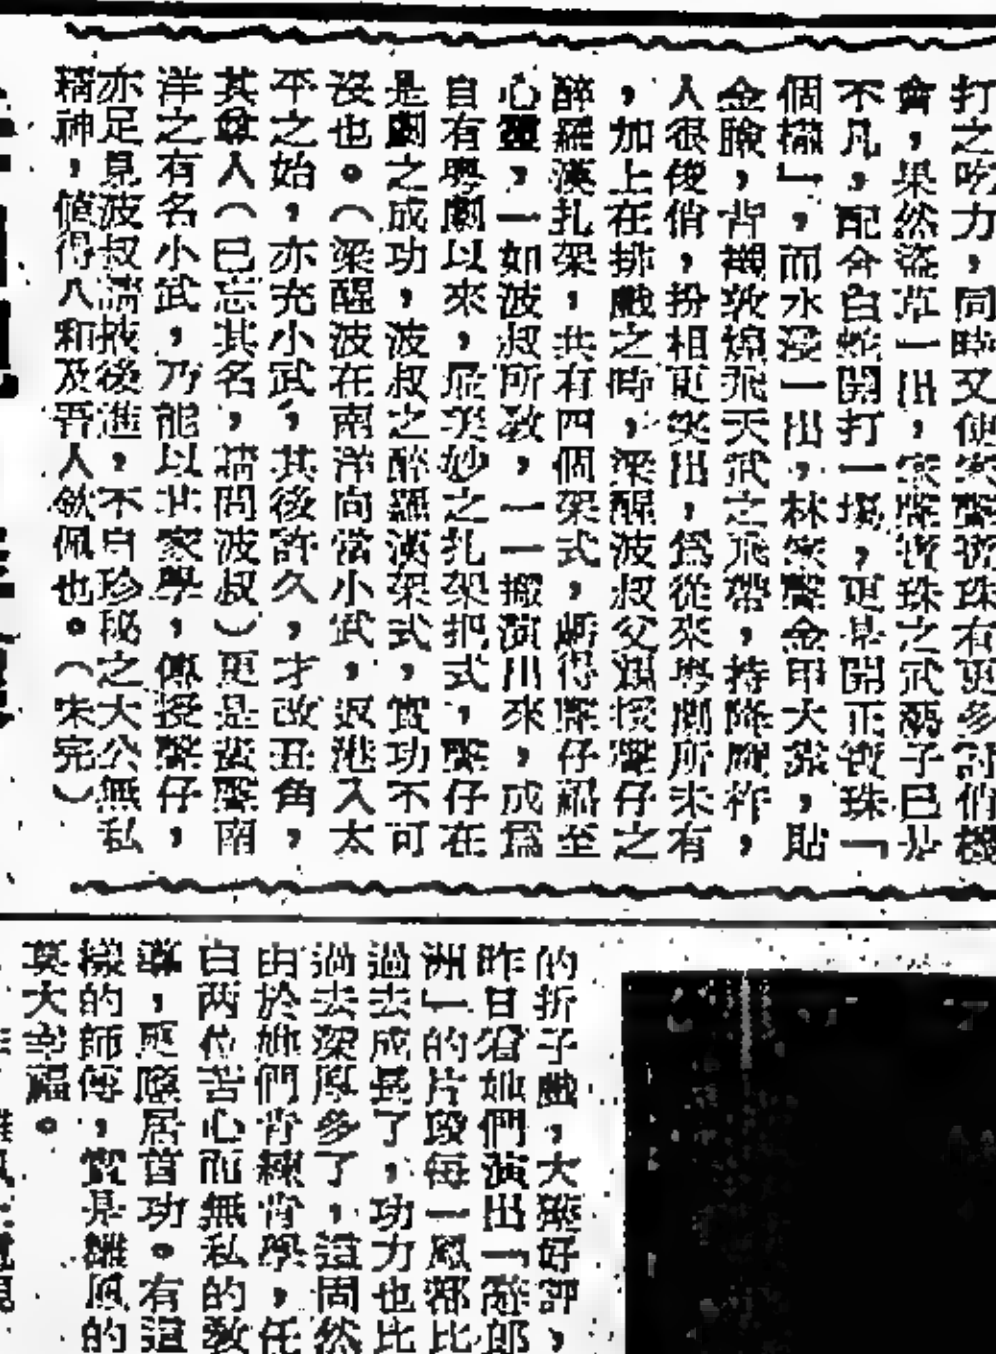 打之吃力，同時又使家聲寶珠有更多
會，果然盜草一出，家聲寶珠之武
不凡，配合白蛇開打一場，更是開正寶珠「
個攩」，而水漫一出，林家聲金甲大
金臉，背襯敦煌飛天武之飛帶，持降魔杵，
人很俊俏，扮相更突出，為從來粵劇所未有
，加上在排戲之時，梁醒波叔父親授聲仔之
醉羅漢扎架，共有四個架式，得聲仔至
心靈，一如波叔所教，一一搬演出來，成為
自有粵劇以來，最美妙之扎架把式，聲仔在
是劇之成功，波叔之醉羅漢架式，實功不可
沒也。（梁醒波在南洋向當小武，返港入太
平之始，亦充小武，其後許久，才改丑角，
其尊人（已忘其名，請問波叔）更是蜚聲南
洋之有名小武，乃能以其家學，傳授聲仔，
亦足見波叔端掖後進，不自珍秘之大公無私
精神，值得八和及吾人欽佩也。（未完）
的折子戲，大獲好評，
昨日看她們演出「
洲」的片段每一風都比
過去成長了，功力也比
過去深厚多了，這固然
由於她們肯練肯學，任
白两位苦心而無私的教
導，更應居首功。有這
樣的師傅，實是雛鳳的
莫大幸福。